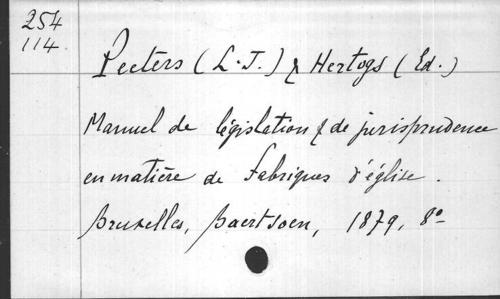 254
114
Peeters (L. J.) & Hertogs (Ed.)
Manuel de législation & de jurisprudence
en matière de Fabriques d'église.
Bruxelles, Baertsoen, 1879, 8º